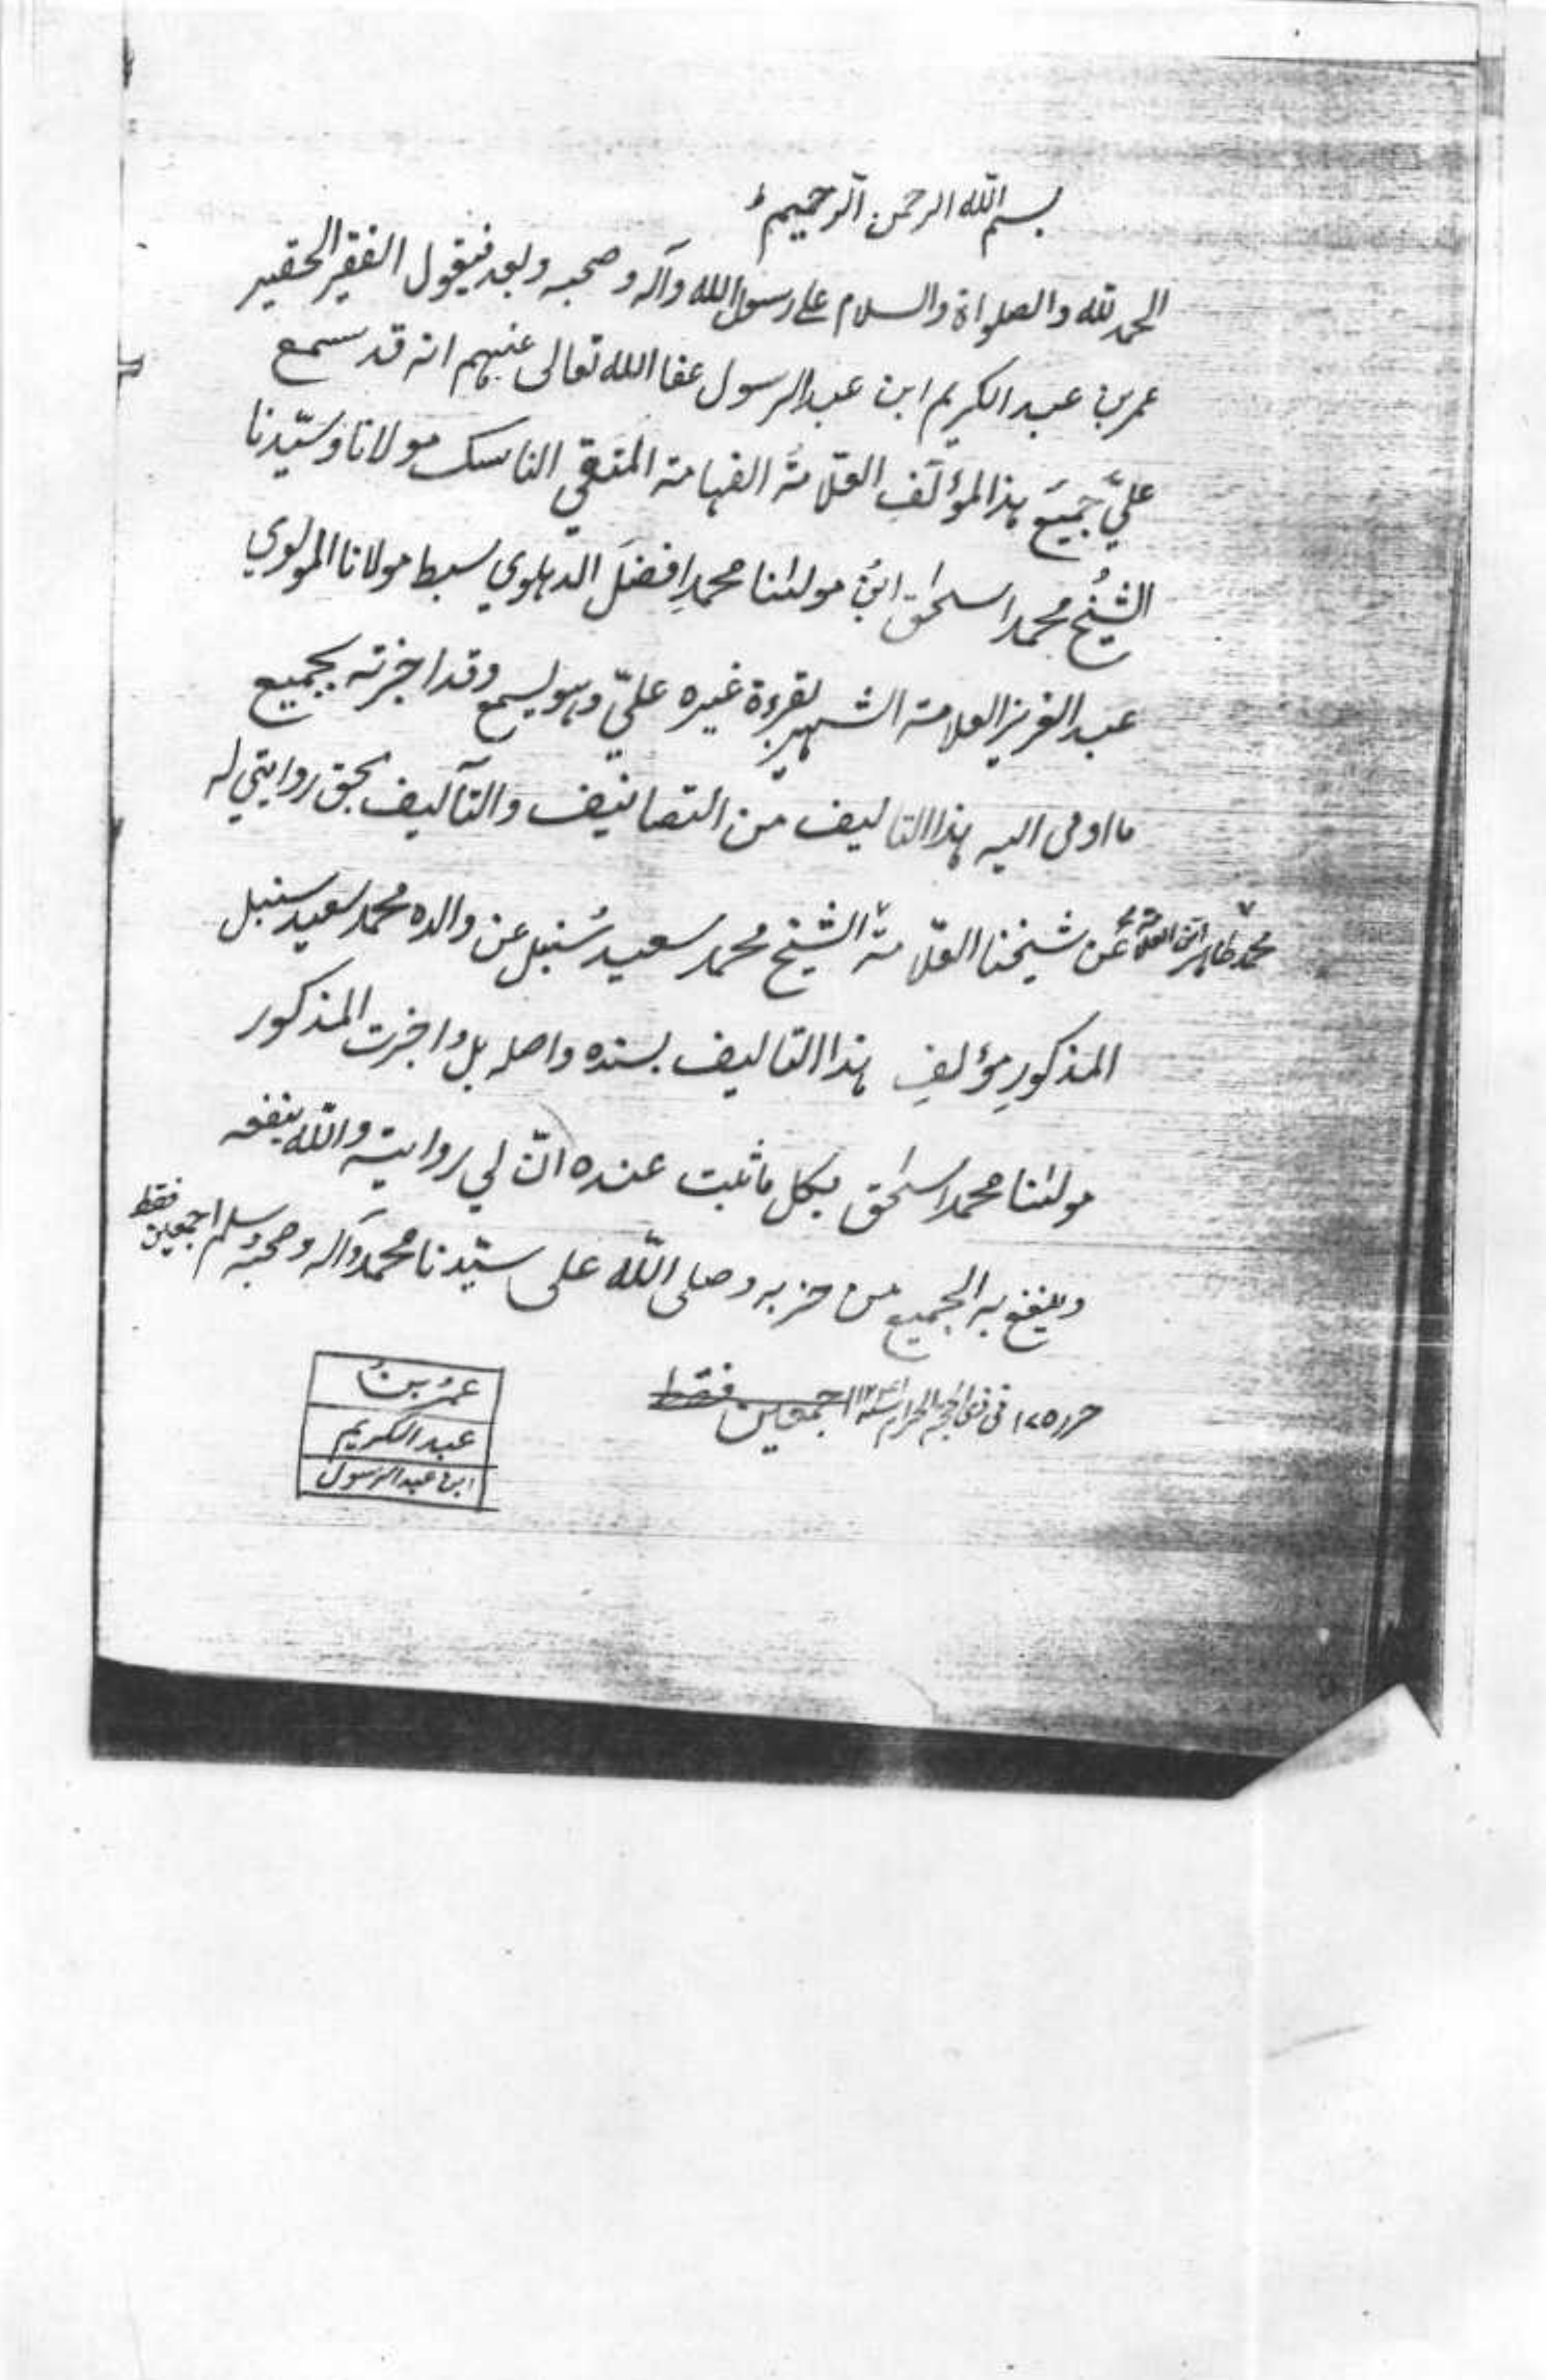 بسم الله الرحمن الرحيم
الحمد لله والصلواة والسلام على رسول الله وآله وصحبه وبعد فيقول الفقير الحقير
عمر بن عبد الكريم ابن عبد الرسول عفا الله تعالى عنهم انه قد سمع
عليّ جميعَ هذا المؤلَّفِ العلّامةُ الفهامة المتقي الناسك مولانا وسيّدنا
الشيخُ محمد اسحٰق ابنُ مولٰنا محمدِ افضلَ الدهلوي سبط مولانا المولوي
عبد العزيز العلامة الشهير بقرءة غيره عليّ وهو يسمع وقد اجزته بجميع
ما اومى اليه هذا التاليف من التصانيف والتآليف بحق روايتي له
عن شيخنا العلّامة الشيخ محمد طاهر ابن العلامة محمد سعيد سُنبل عن والده محمد سعيد سنبل
المذكورِ مؤلفِ هذا التاليف بسنده واصله بل واجزت المذكور
مولٰنا محمد اسحٰق بكل ما ثبت عنده انّ لي روايته والله ينفعه
وينفع به الجميع من حزبه وصلى الله على سيّدنا محمد وآله وصحبه وسلم اجمعين فقط
حرر في ذي الحجة الحرام اجمعين فقط
عمرُ بنُ
عبد الكريم
ابن عبد الرسول